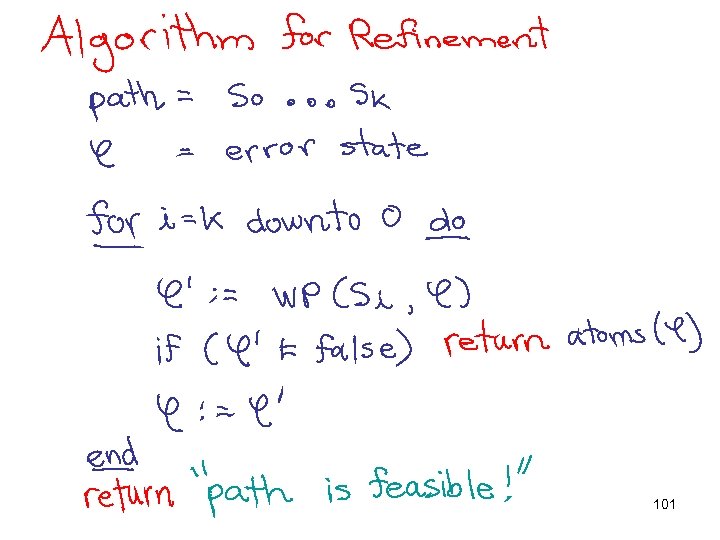 Algorithm for Refinement
path = S0 ... Sk
φ = error state
for i=k downto 0 do
φ' := WP(Si, φ)
if (φ' ⊨ false) return atoms(φ)
φ := φ'
end
return "path is feasible!"
101